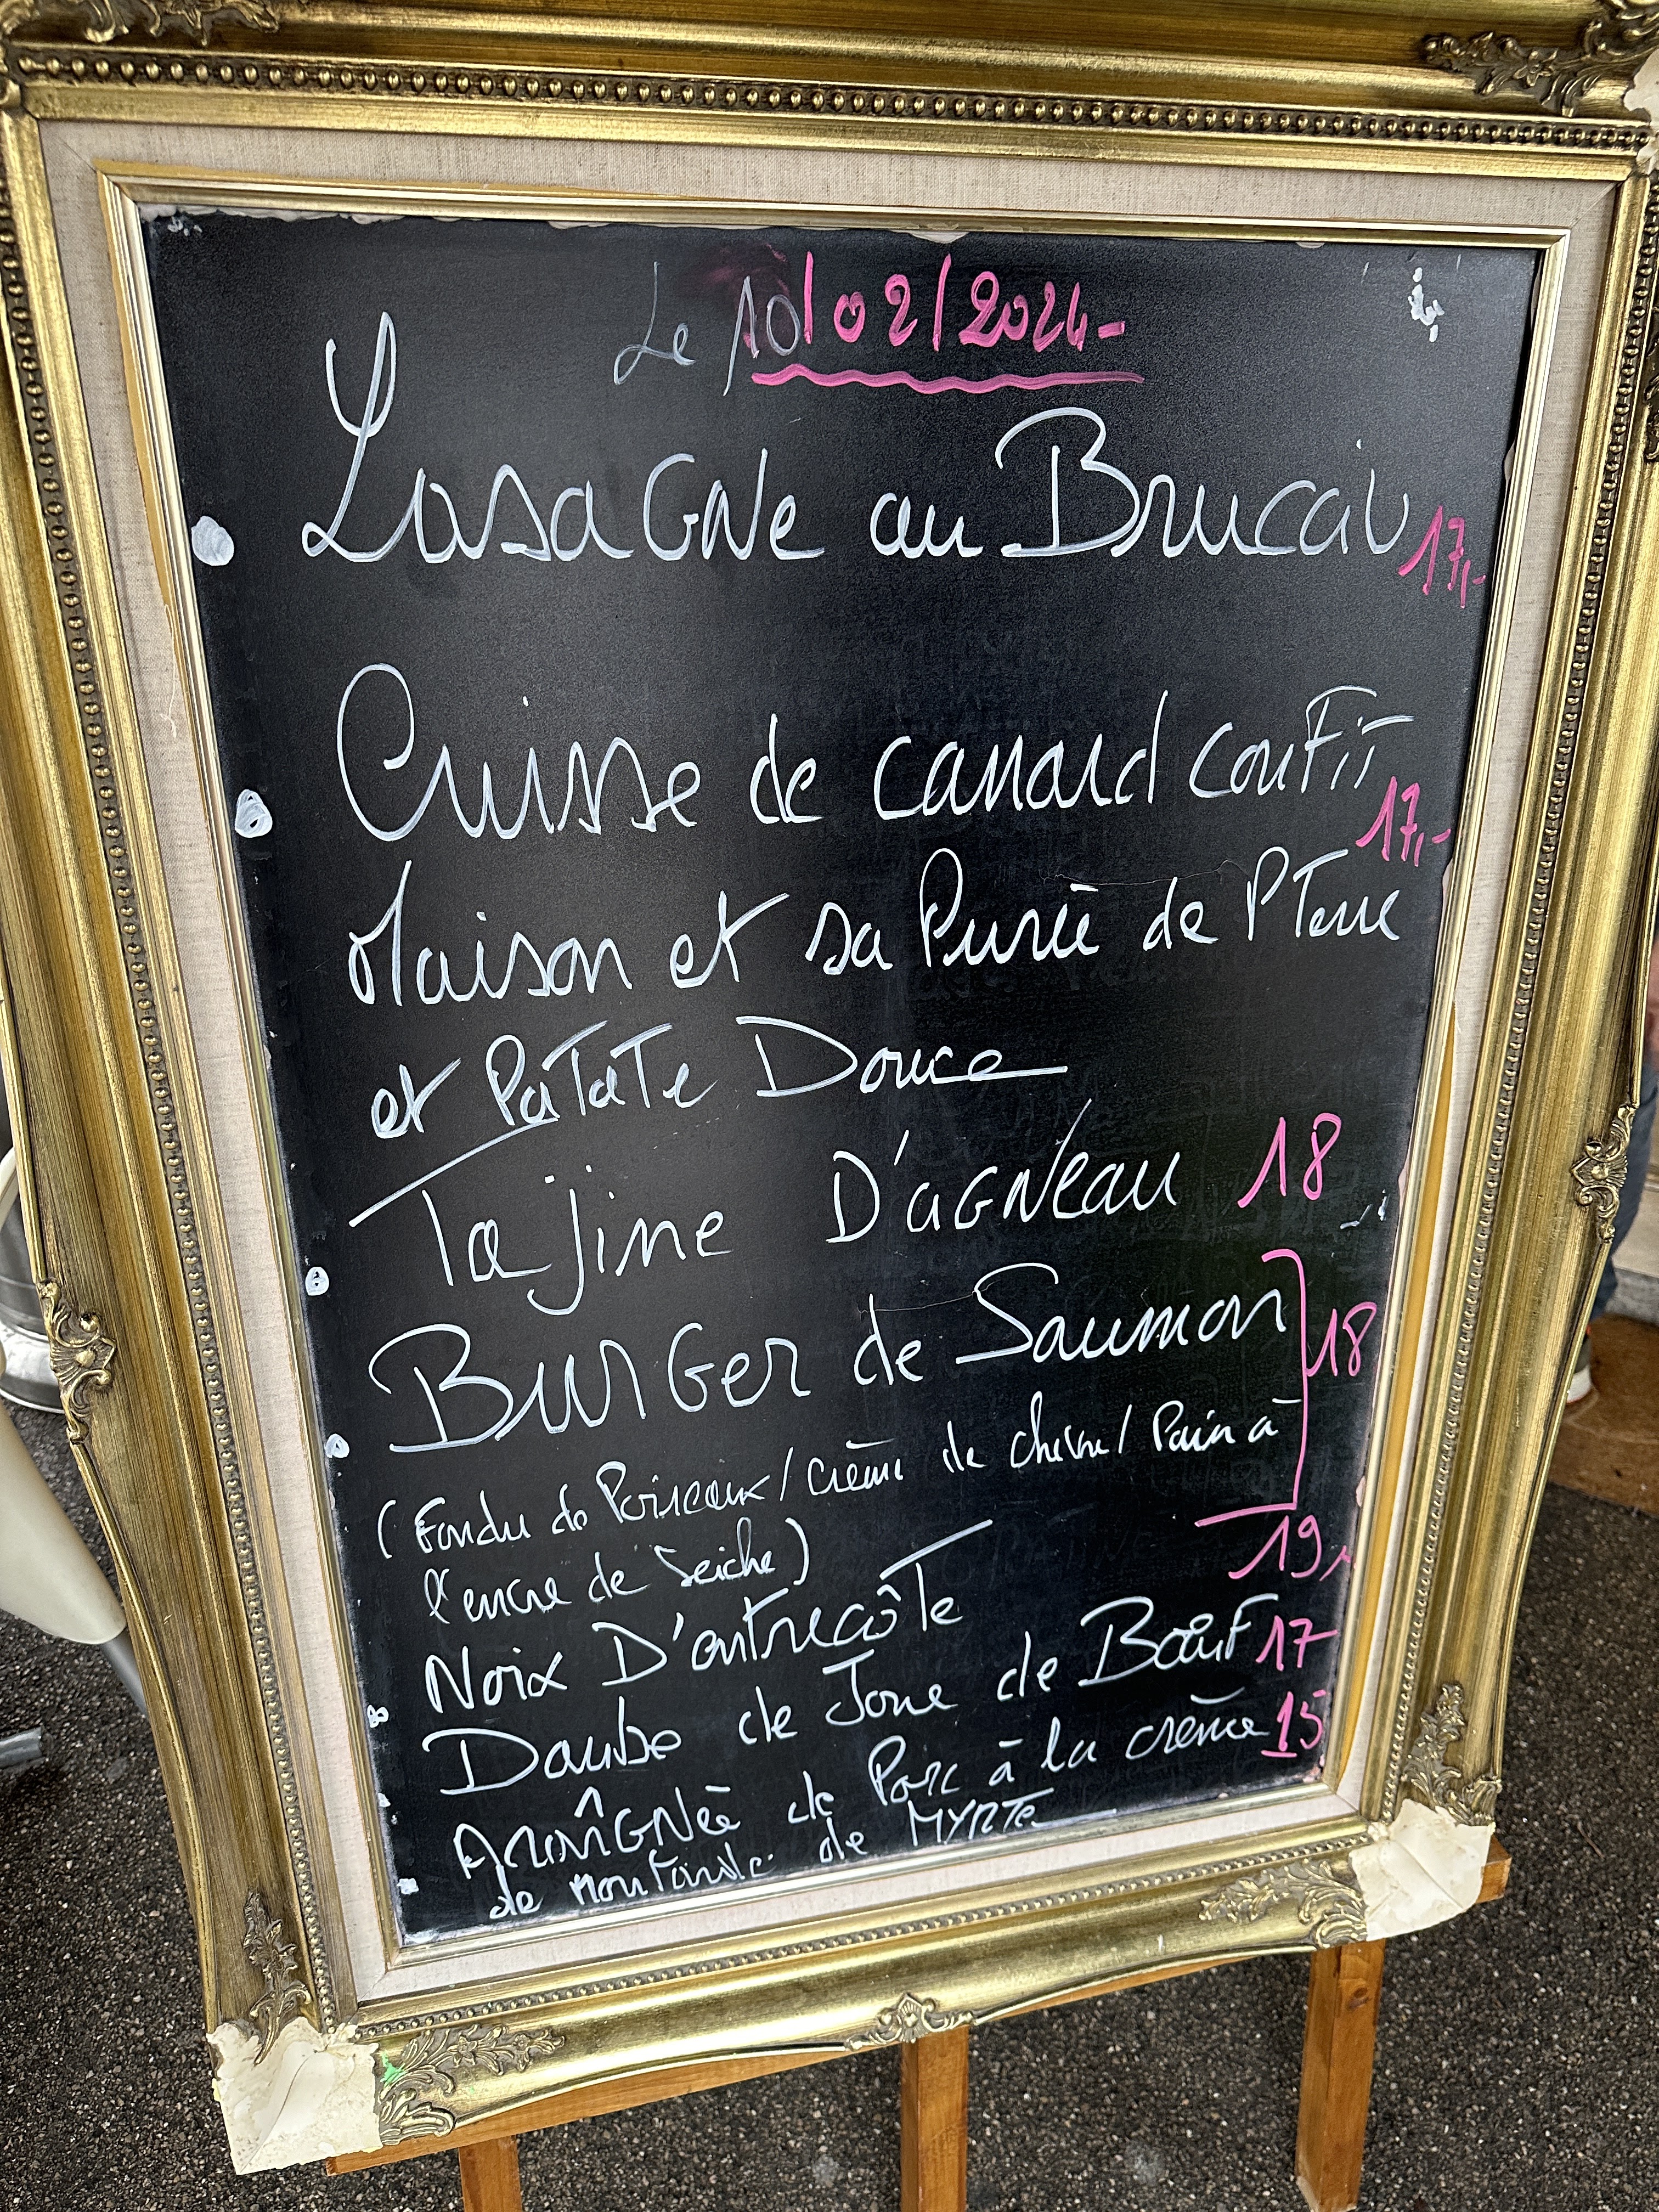 Le 10/02/2024-
Lasagne au Brucciu 17,-
Cuisse de canard confit 17,-
Maison et sa Purée de P Terre
et Patate Douce
Tajine D'agneau 18
Burger de Saumon 18
(Fondu de Poireaux / Crème de chèvre / Pain à
l'encre de Seiche)
19,
Noix D'entrecôte
Daube de Joue de Bœuf 17
Araîgnée de Porc à la crème 15
de moutarde de MYRTE